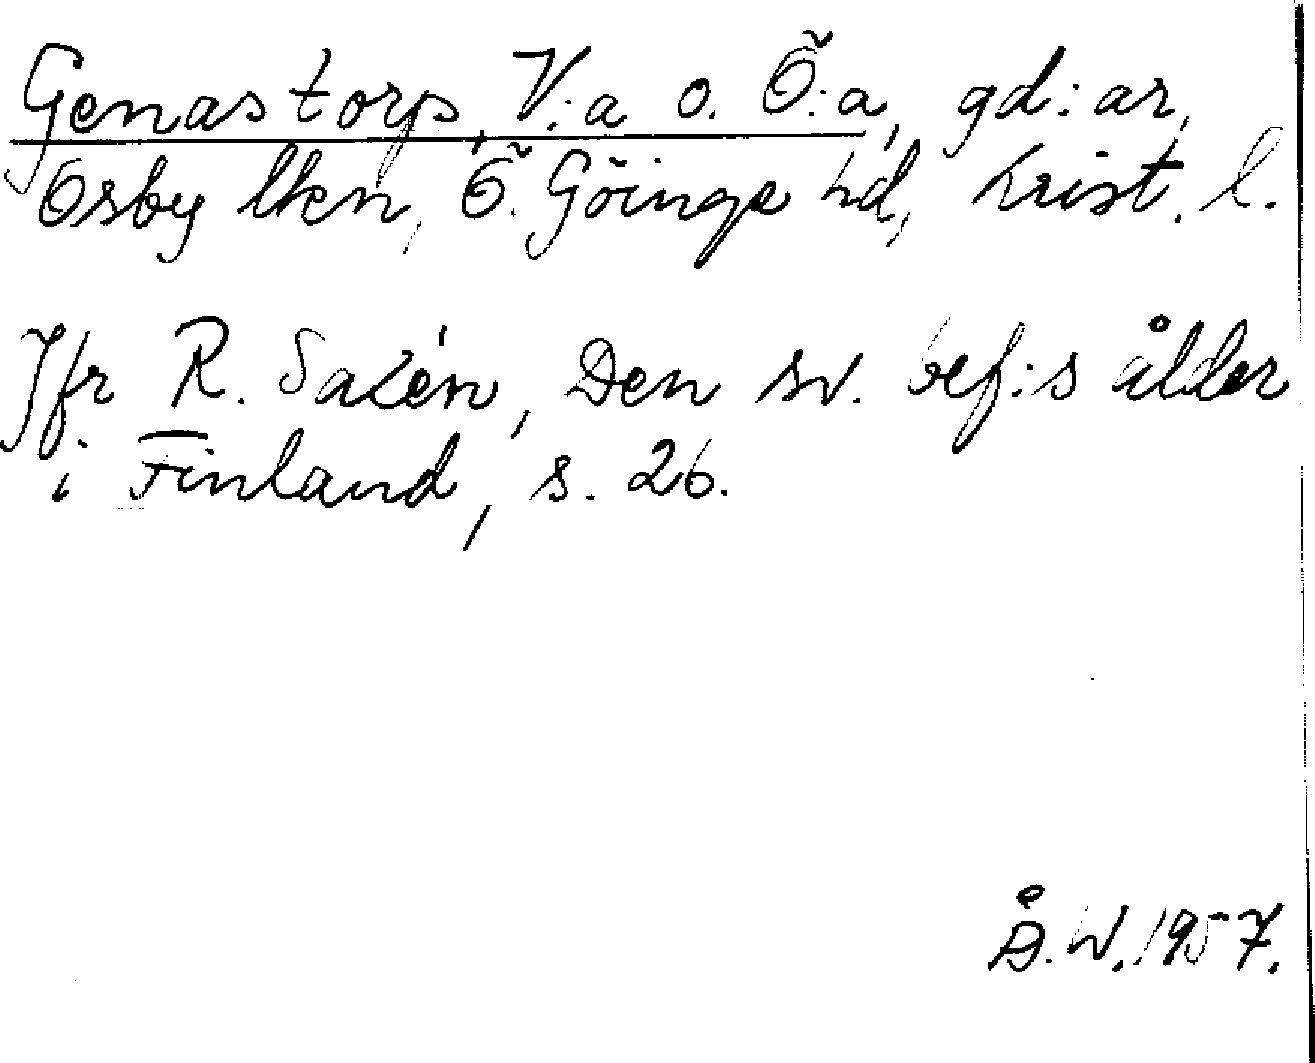 Genastorp, V:a o. Ö:a, gd:ar,
Osby lkn, Ö. Göinge hd, Krist. l.
Jfr R. Saxén, Den sv. bef:s ålder
i Finland, s. 26.
Å. W. 1957.